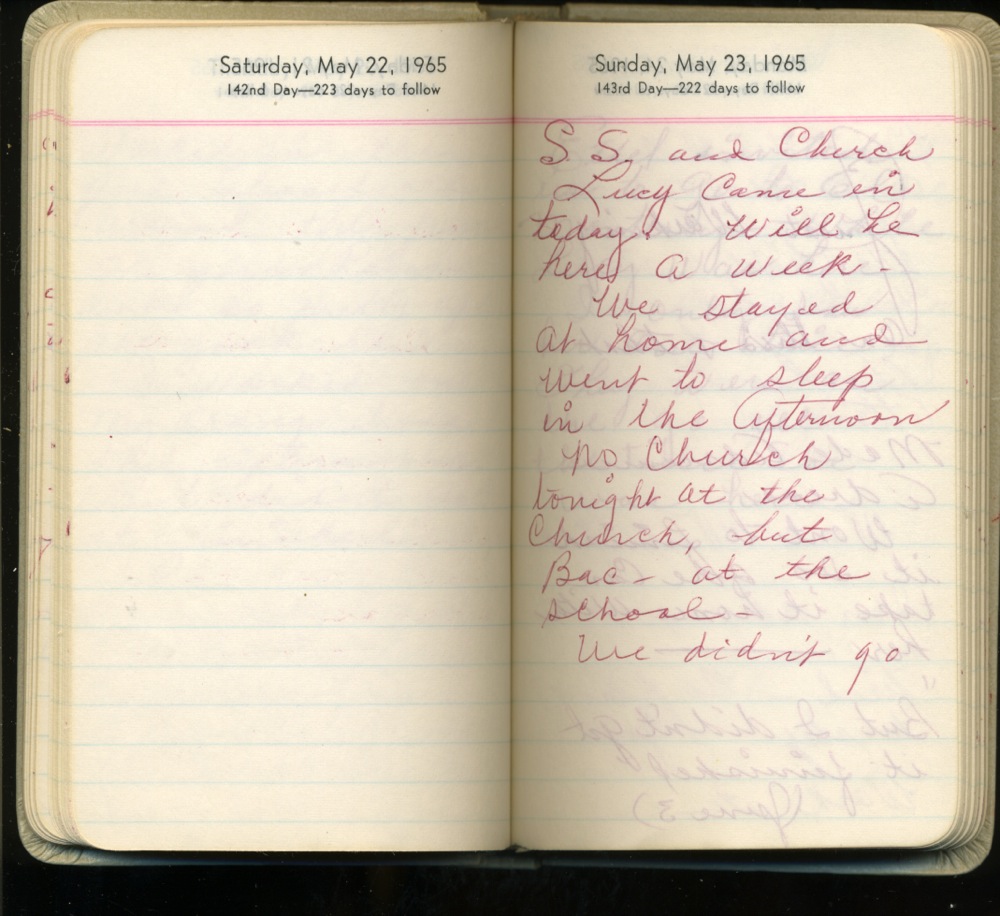 Saturday, May 22, 1965
142nd Day—223 days to follow
Sunday, May 23, 1965
143rd Day—222 days to follow
S. S. and Church
Lucy Came in
today. Will be
here A Week -
We stayed
at home and
Went to sleep
in the Afternoon
No Church
tonight at the
Church, but
Bac - at the
school -
We didn't go